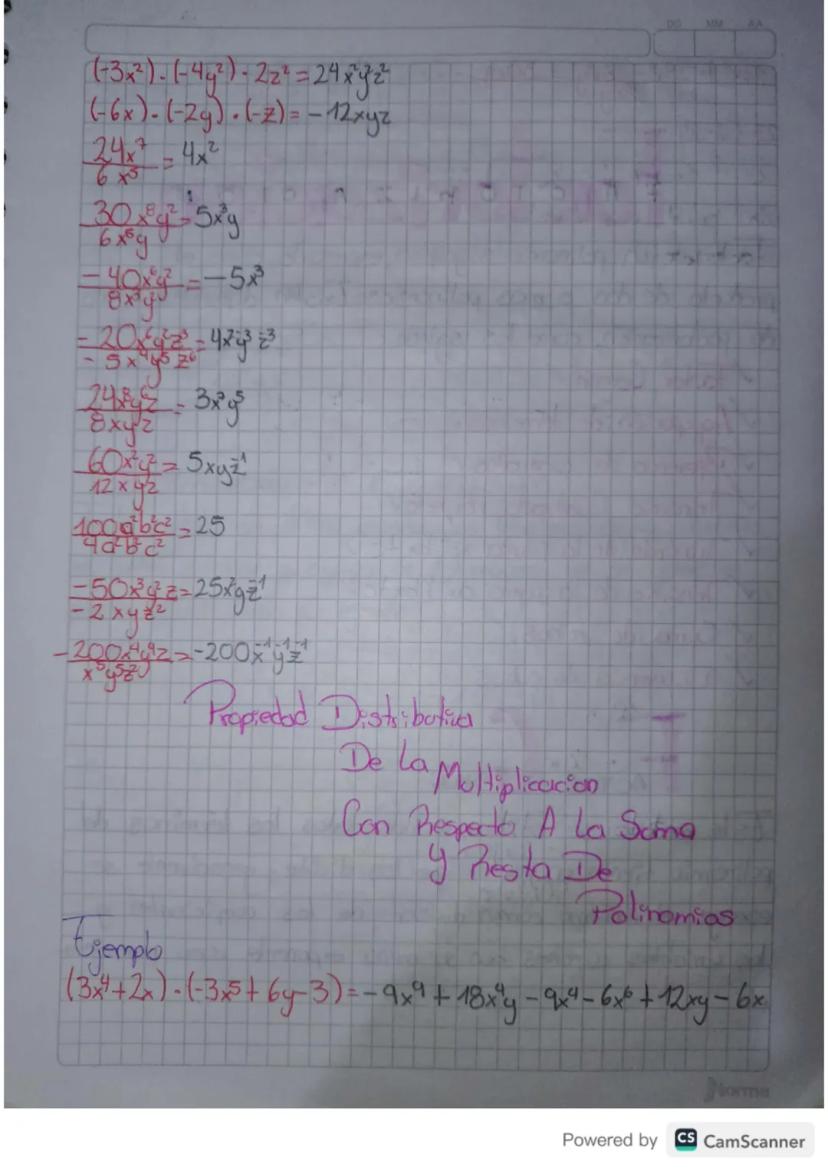 DD MM AA
(-3x²) · (-4y²) · 2z² = 24x²y²z²
(-6x) · (-2y) · (-z) = -12xyz
24x⁷/6x⁵ = 4x²
30x⁸y²/6x⁵y = 5x³y
-40x⁶y²/8x³y² = -5x³
-20x⁶y²z³/-5x⁴y⁵z⁶ = 4x²y⁻³z⁻³
= 3x⁷y⁵
60x²y²/12xyz = 5xyz⁻¹
100a²b²c²/4a²b²c² = 25
-50x³y²z/-2xyz² = 25x²yz⁻¹
-200x⁴y⁴z/x⁵y⁵z² = -200x⁻¹y⁻¹z⁻¹
Propiedad Distributiva
De La Multiplicacion
Con Respecto A La Suma
Y Resta De
Polinomios
Ejemplo
(3x⁴+2x) · (-3x⁵+6y-3) = -9x⁹+18x⁴y-9x⁴-6x⁶+12xy-6x
Norma
Powered by CS CamScanner